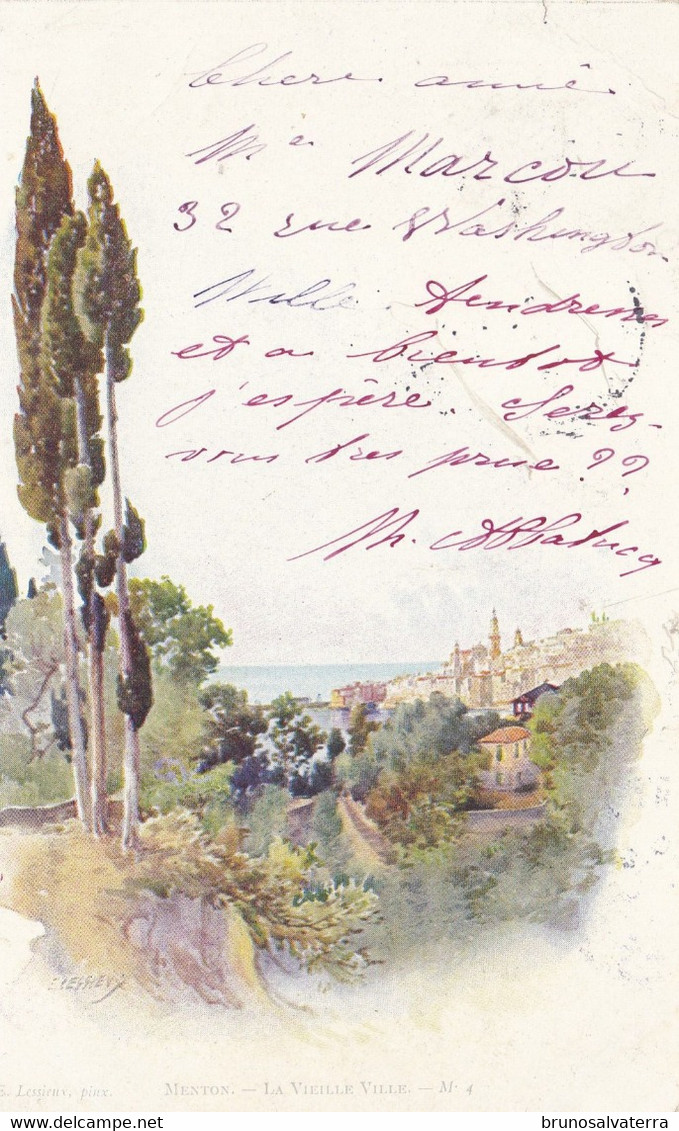 Chere amie
Me Marcou
32 rue Washington
Mille tendresses
et a bientot
j'espère. Serez-
vous tres prise ??
M.
E. LESSIEUX
E. Lessieux, pinx. MENTON. — LA VIEILLE VILLE. — M. 4
brunosalvaterra
www.delcampe.net